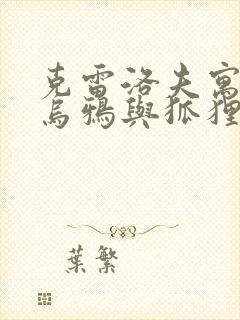 克雷洛夫寓
烏鴉與狐狸
葉繁